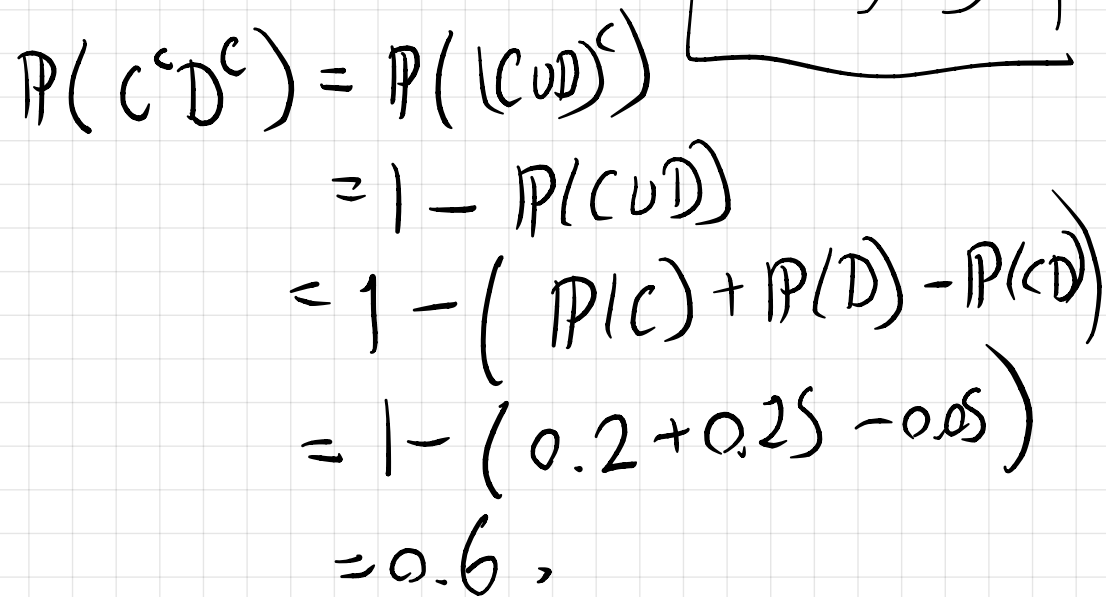 ℙ(CᶜDᶜ) = ℙ((C∪D)ᶜ)
= 1 − ℙ(C∪D)
= 1 − (ℙ(C) + ℙ(D) − ℙ(CD))
= 1 − (0.2 + 0.25 − 0.05)
= 0.6,